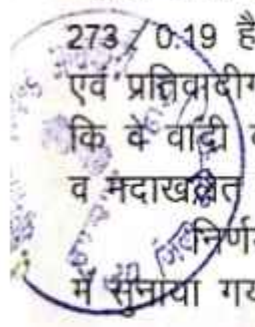 273 / 0.19 है
एवं प्रतिवादीग
कि वे वादी व
व मदाखलत
निर्णय
में सुनाया गय